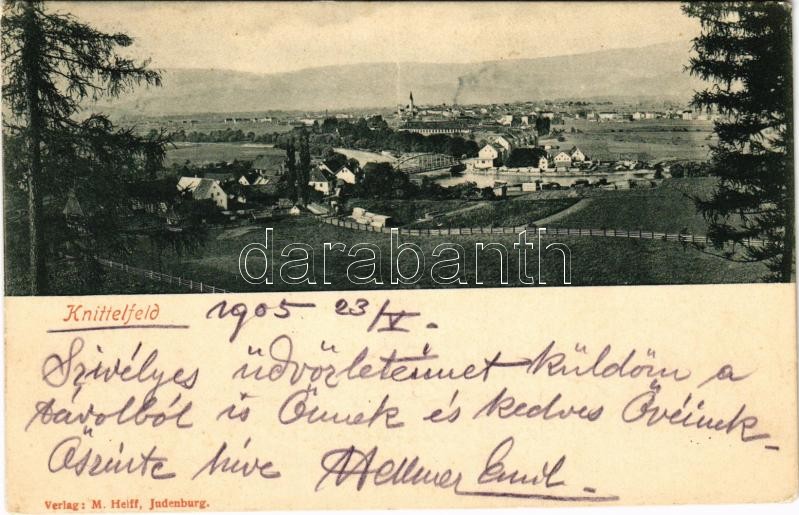 darabanth
Knittelfeld 1905 23/V.
Szivélyes üdvözletemet küldöm a
távolból is Önnek és kedves Övéinek
Őszinte híve Emil
Verlag: M. Helff, Judenburg.